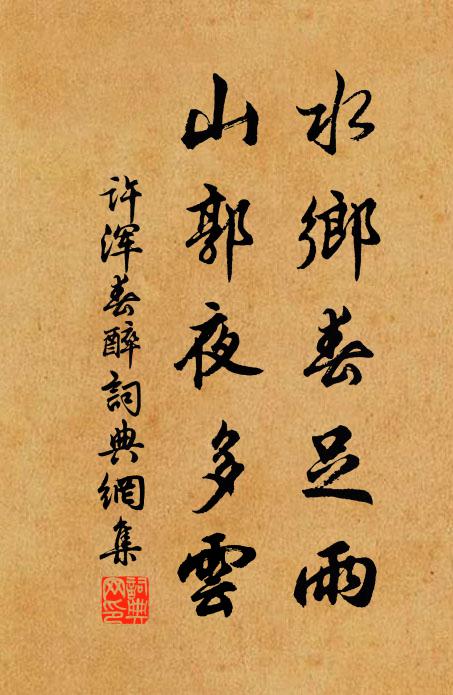 水鄉春足雨
山郭夜多雲
许浑春醉詞典網集
詞典
网印